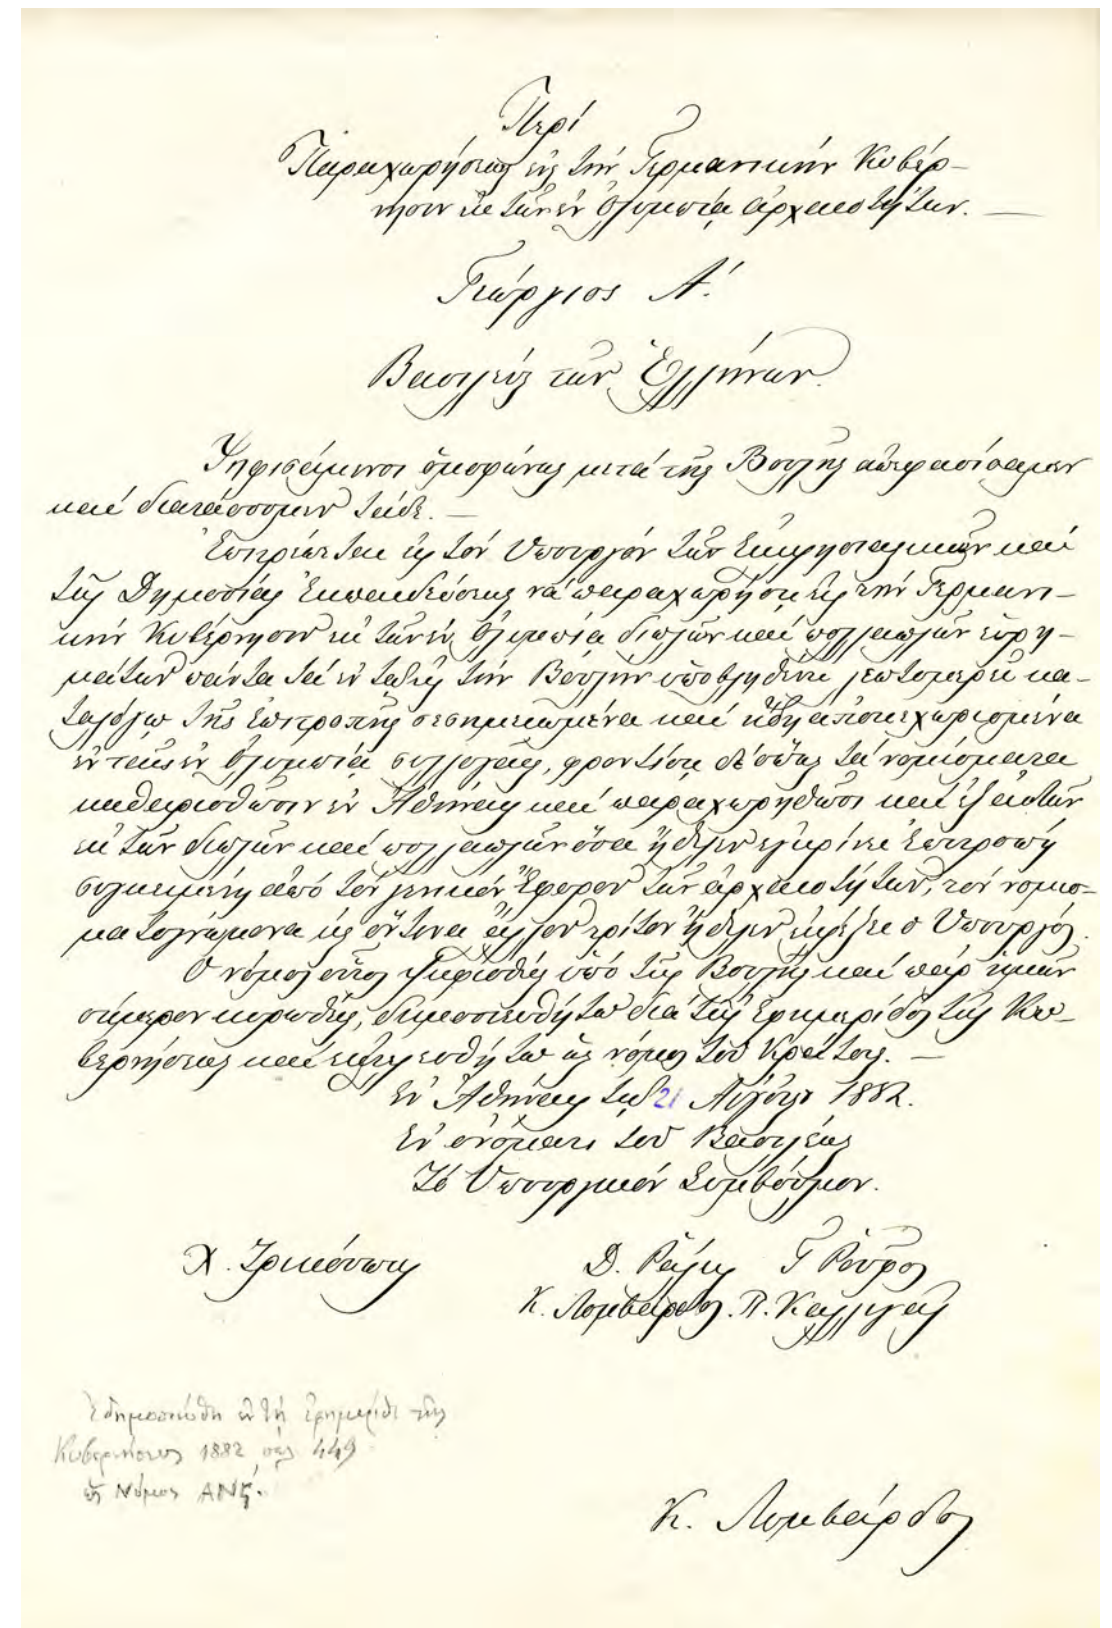 Περί
Παραχωρήσεως εἰς τὴν Γερμανικὴν Κυβέρ-
νησιν ἐκ τῶν ἐν Ὀλυμπίᾳ ἀρχαιοτήτων. —
Γεώργιος Α΄.
Βασιλεὺς τῶν Ἑλλήνων.
Ψηφισάμενοι ὁμοφώνως μετὰ τῆς Βουλῆς ἀπεφασίσαμεν
καὶ διατάσσομεν τάδε. —
Ἐπιτρέπεται εἰς τὸν Ὑπουργὸν τῶν Ἐκκλησιαστικῶν καὶ
τῆς Δημοσίας Ἐκπαιδεύσεως νὰ παραχωρήσῃ εἰς τὴν Γερμανι-
κὴν Κυβέρνησιν ἐκ τῶν ἐν Ὀλυμπίᾳ διπλῶν καὶ πολλαπλῶν εὑρη-
μάτων πάντα τὰ ἐν τῷ εἰς τὴν Βουλὴν ὑποβληθέντι λεπτομερεῖ κα-
ταλόγῳ τῆς Ἐπιτροπῆς σεσημειωμένα καὶ ἤδη ἀποκεχωρισμένα
ἐν ταῖς ἐν Ὀλυμπίᾳ συλλογαῖς, φροντίσῃ δὲ ὅπως τὰ νομίσματα
καθαρισθῶσιν ἐν Ἀθήναις καὶ παραχωρηθῶσι καὶ ἐξ αὐτῶν
ἐκ τῶν διπλῶν καὶ πολλαπλῶν ὅσα ἤθελεν ἐγκρίνει Ἐπιτροπὴ
συγκειμένη ἀπὸ τὸν γενικὸν Ἔφορον τῶν ἀρχαιοτήτων, τὸν νομισ-
ματογνώμονα κ̀ς ὅντινα ἄλλον τρίτον ἤθελεν ἐκλέξει ὁ Ὑπουργός.
Ὁ νόμος οὗτος ψηφισθεὶς ὑπὸ τῆς Βουλῆς καὶ παρ' ἡμῶν
σήμερον κυρωθείς, δημοσιευθήτω διὰ τῆς Ἐφημερίδος τῆς Κυ-
βερνήσεως καὶ ἐκτελεσθήτω ὡς νόμος τοῦ Κράτους. —
Ἐν Ἀθήναις τῇ 21 Αὐγούστ 1882.
Ἐν ὀνόματι τοῦ Βασιλέως
Τὸ Ὑπουργικὸν Συμβούλιον.
Χ. Τρικούπης Δ. Ράλλης Γ Ροῦφος
Κ. Λομβάρδος. Π. Καλλιγᾶς
Ἐδημοσιεύθη ἐν τῇ Ἐφημερίδι τῆς
Κυβερνήσεως 1882 σελ 449
ὡς Νόμος ΑΝϚ΄.
Κ. Λομβάρδος